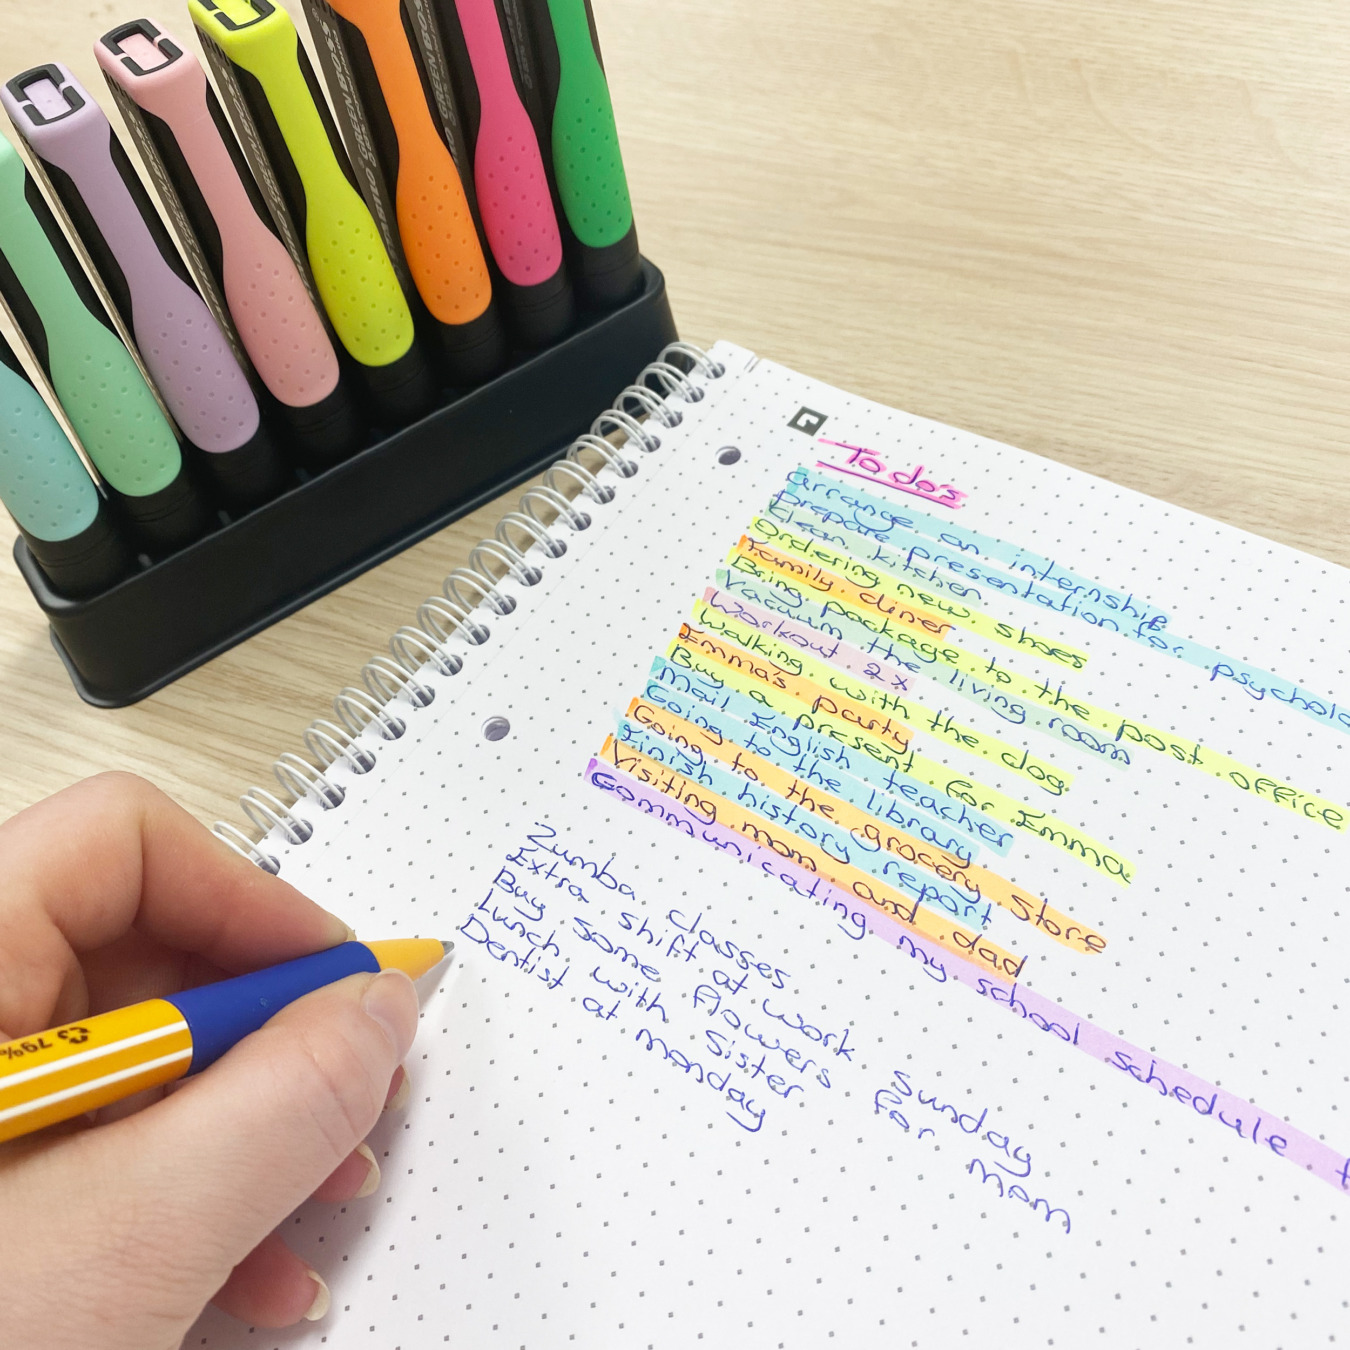 To do's
arrange an internship
prepare presentation for psycholo
Clean kitchen
Ordering new shoes
Family diner
Bring package to the post office
Vacuum the living room
Workout 2x
Walking with the dog
Emma's party
Buy a present for Emma
Mail English teacher
Going to the library
Going to the grocery store
Finish history report
Visiting mom and dad
Communicating my school schedule t
Zumba classes
Extra shift at work Sunday
Buy some flowers for mom
Lunch with sister
Dentist at monday
79%